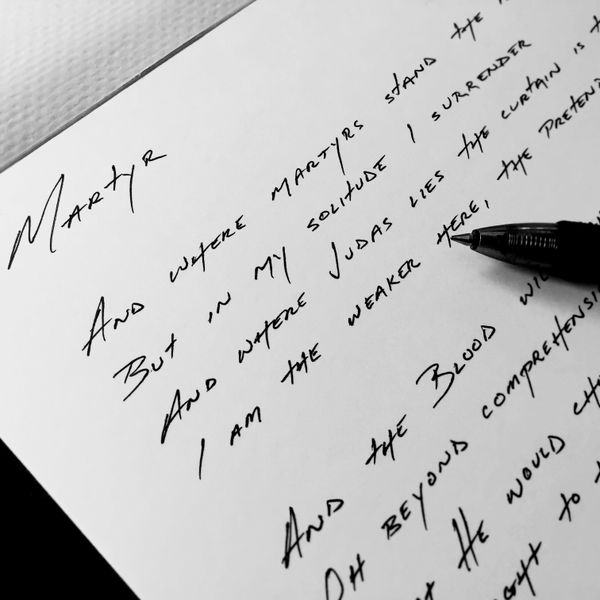 Martyr
And where martyrs stand the
But in my solitude I surrender
And where Judas lies the curtain is
I am the weaker here, the
And the Blood
Oh beyond
He would
to